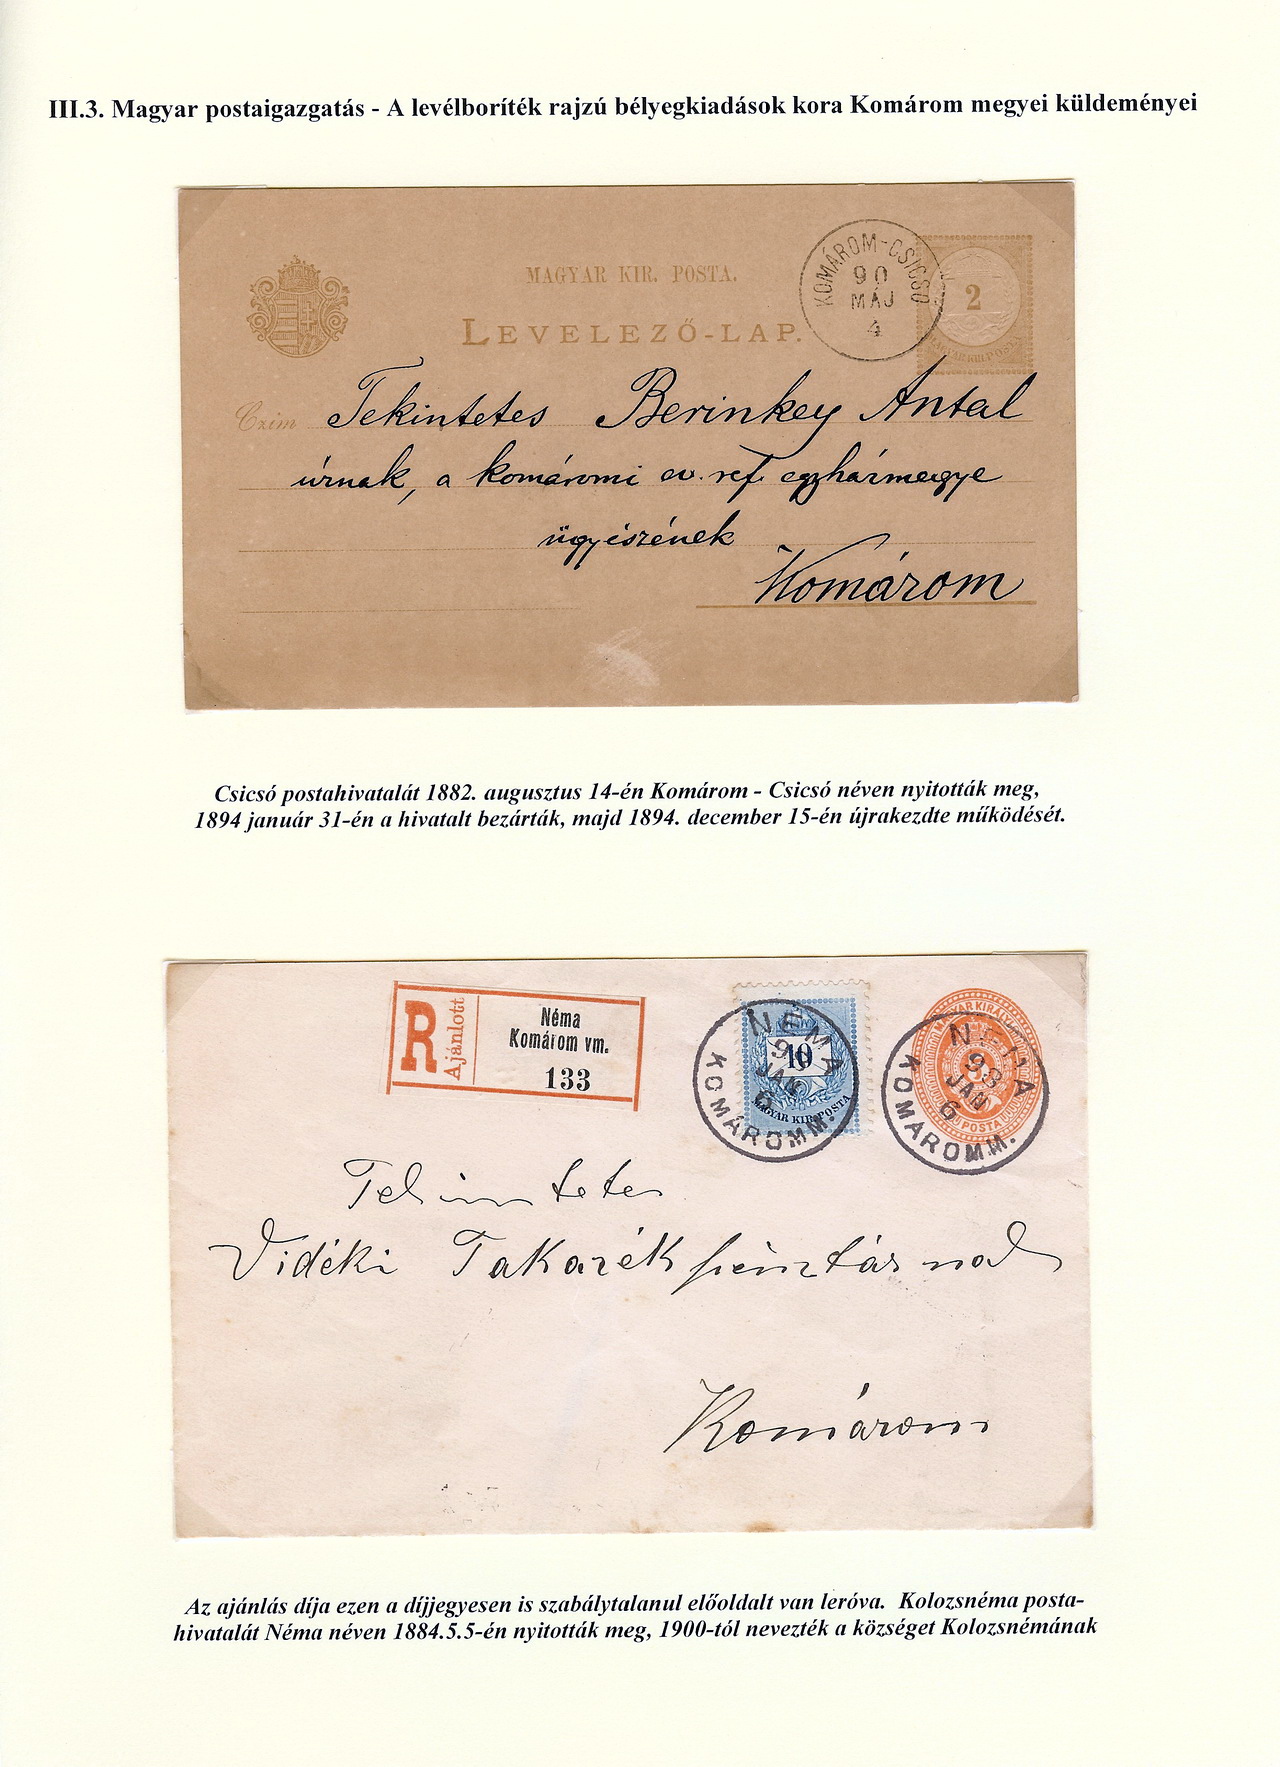 III.3. Magyar postaigazgatás - A levélboríték rajzú bélyegkiadások kora Komárom megyei küldeményei
MAGYAR KIR. POSTA.
LEVELEZŐ-LAP.
KOMÁROM-CSICSÓ
90
MÁJ
4
2
MAGYAR KIR. POSTA
Czim
Tekintetes Berinkey Antal
úrnak, a komáromi ev. ref. egyházmegye
ügyészének
Komárom
Csicsó postahivatalát 1882. augusztus 14-én Komárom - Csicsó néven nyitották meg,
1894 január 31-én a hivatalt bezárták, majd 1894. december 15-én újrakezdte működését.
R
Ajánlott
Néma
Komárom vm.
133
NÉMA
JAN
6
KOMÁROM M.
10
MAGYAR KIR. POSTA
NÉMA
93
JAN
6
KOMÁROM M.
MAGYAR KIRÁLYI
POSTA
Tekintetes
Vidéki Takarékpénztárnak
Komárom
Az ajánlás díja ezen a díjjegyesen is szabálytalanul előoldalt van leróva. Kolozsnéma posta-
hivatalát Néma néven 1884.5.5-én nyitották meg, 1900-tól nevezték a községet Kolozsnémának